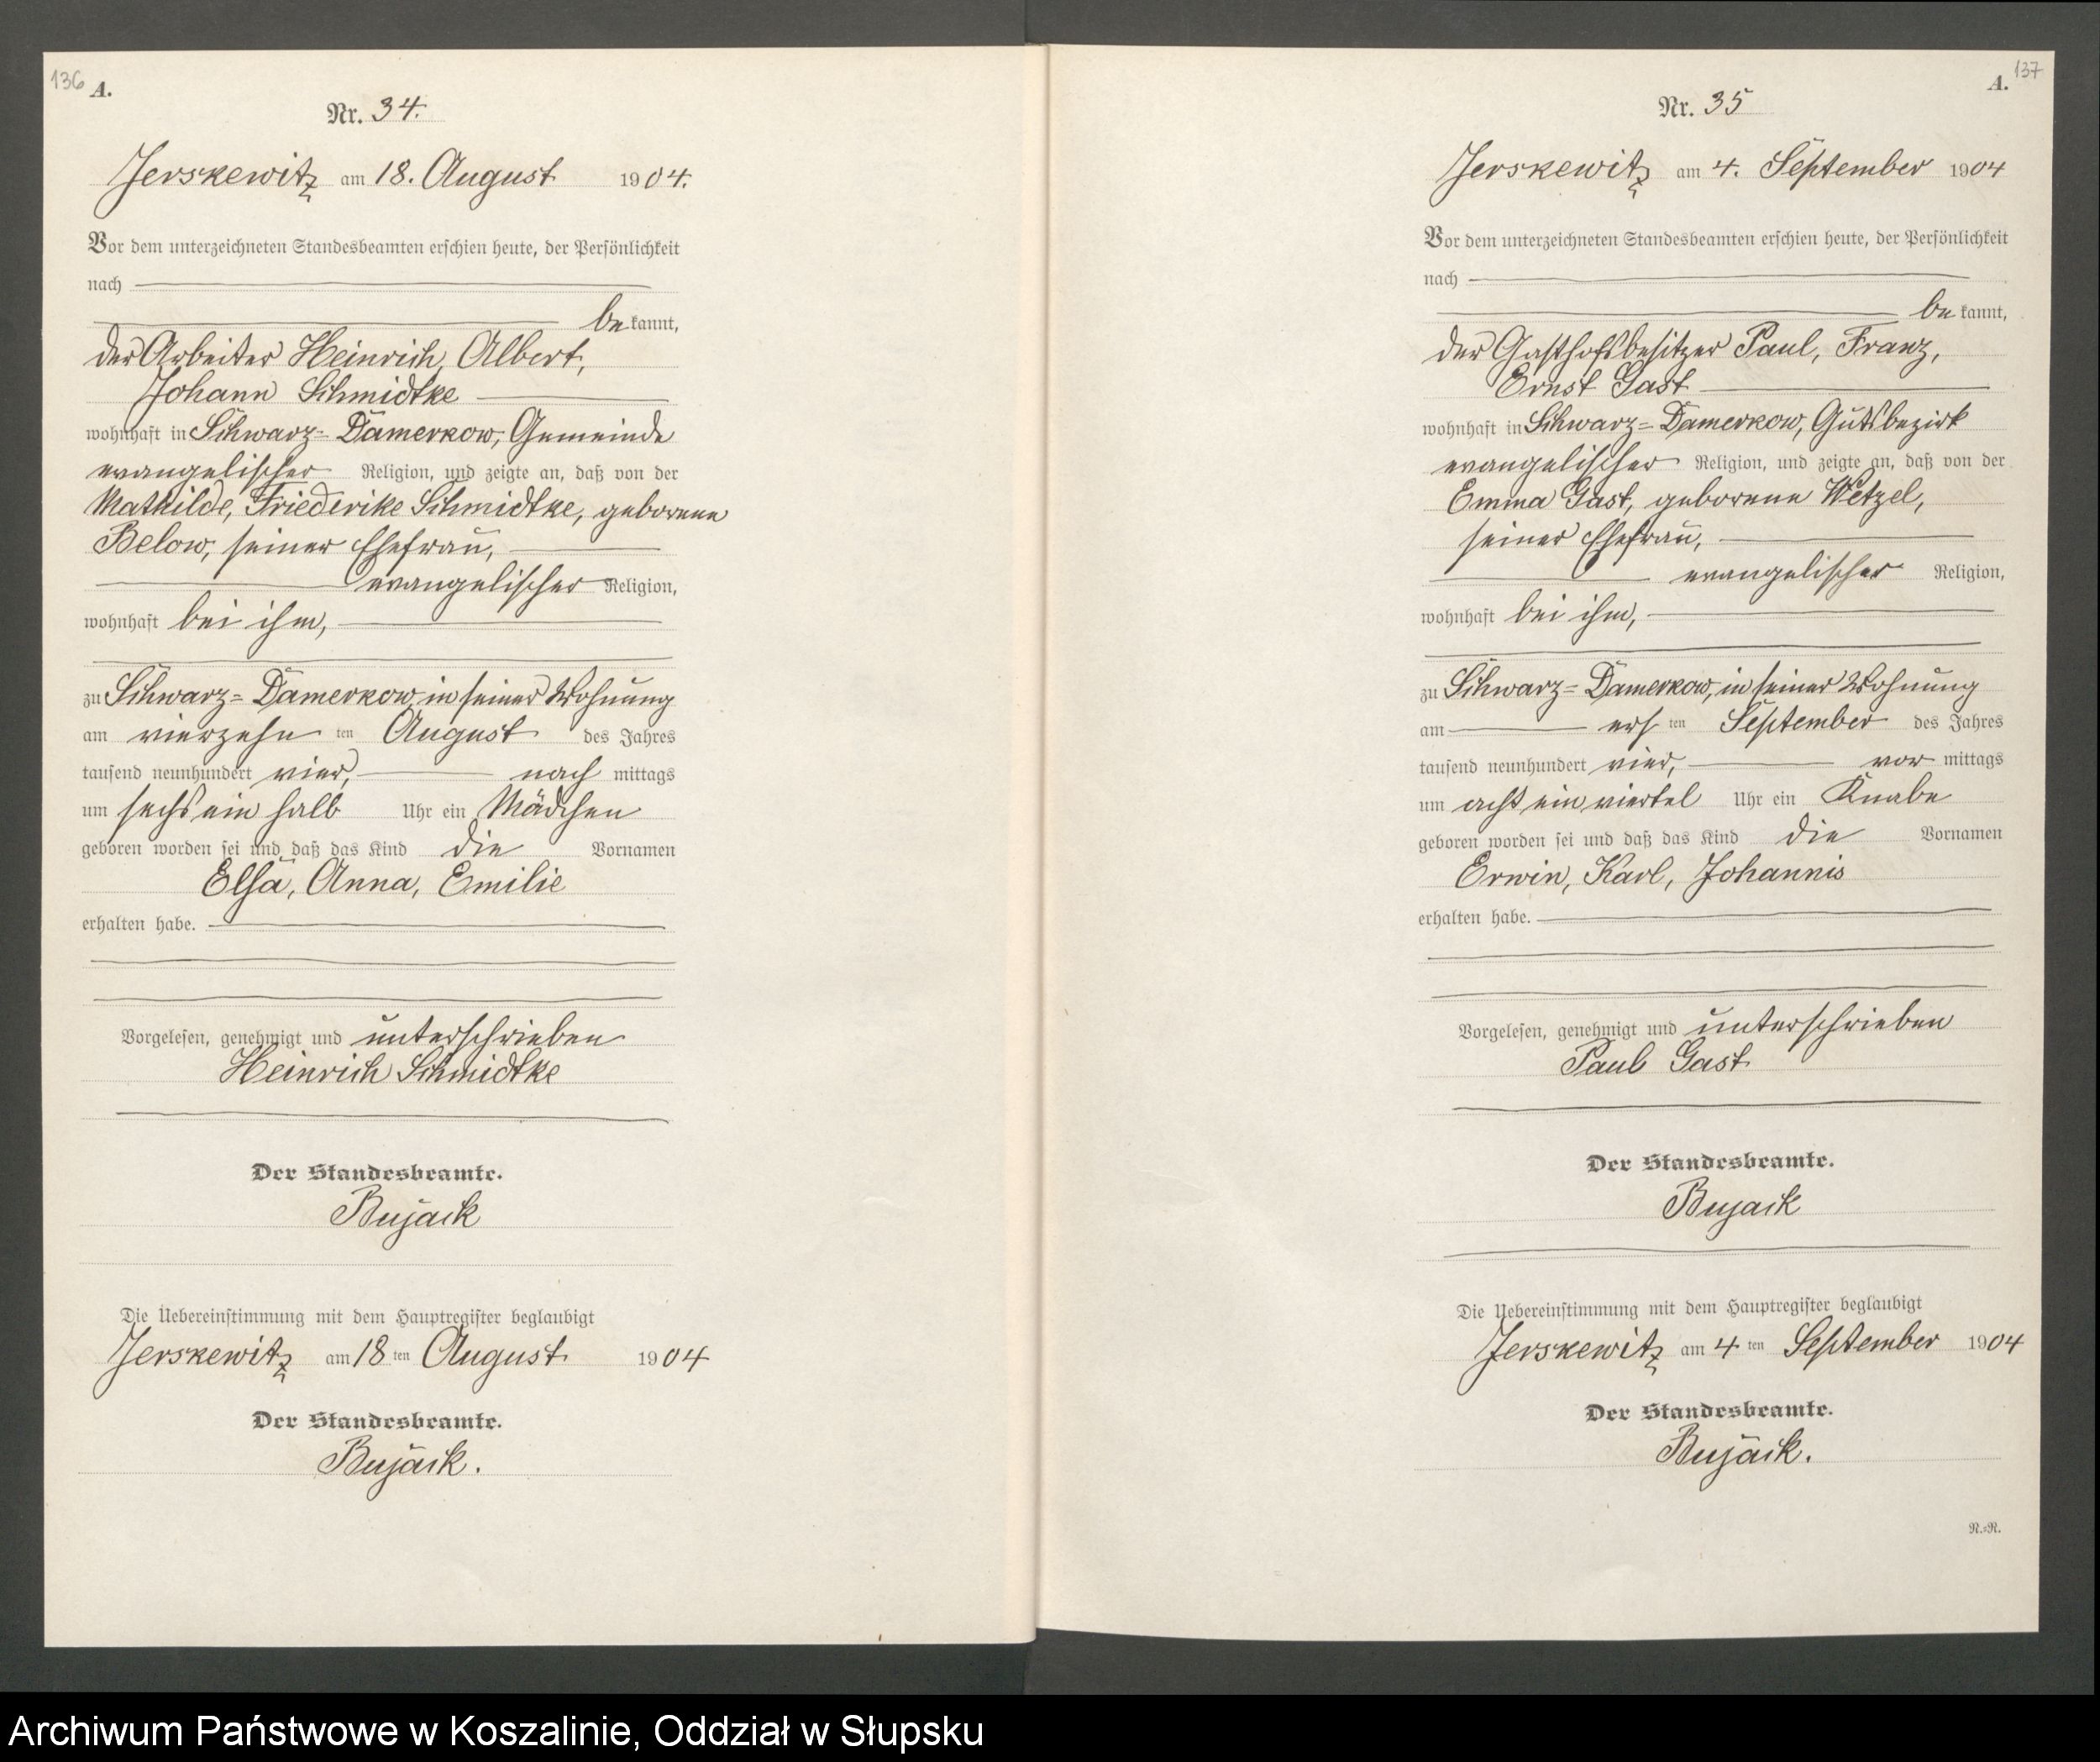 136
A.
Nr. 34.
Jerskewitz am 18. August 1904.
Vor dem unterzeichneten Standesbeamten erschien heute, der Persönlichkeit
nach
bekannt,
der Arbeiter Heinrich, Albert,
Johann Schmidtke
wohnhaft in Schwarz-Damerkow, Gemeinde
evangelischer Religion, und zeigte an, daß von der
Mathilde, Friederike Schmidtke, geborene
Below, seiner Ehefrau,
evangelischer Religion,
wohnhaft bei ihm,
zu Schwarz-Damerkow, in seiner Wohnung
am vierzehn ten August des Jahres
tausend neunhundert vier, nach mittags
um sechs ein halb Uhr ein Mädchen
geboren worden sei und daß das Kind die Vornamen
Elsa, Anna, Emilie
erhalten habe.
Vorgelesen, genehmigt und unterschrieben
Heinrich Schmidtke
Der Standesbeamte.
Bujack
Die Uebereinstimmung mit dem Hauptregister beglaubigt
Jerskewitz am 18 ten August 1904
Der Standesbeamte.
Bujack.
137
A.
Nr. 35
Jerskewitz am 4. September 1904
Vor dem unterzeichneten Standesbeamten erschien heute, der Persönlichkeit
nach
bekannt,
der Gasthofsbesitzer Paul, Franz,
Ernst Gast
wohnhaft in Schwarz-Damerkow, Gutsbezirk
evangelischer Religion, und zeigte an, daß von der
Emma Gast, geborene Wetzel,
seiner Ehefrau,
evangelischer Religion,
wohnhaft bei ihm,
zu Schwarz-Damerkow, in seiner Wohnung
am ers ten September des Jahres
tausend neunhundert vier, vor mittags
um acht ein viertel Uhr ein Knabe
geboren worden sei und daß das Kind die Vornamen
Erwin, Karl, Johannis
erhalten habe.
Vorgelesen, genehmigt und unterschrieben
Paul Gast
Der Standesbeamte.
Bujack
Die Uebereinstimmung mit dem Hauptregister beglaubigt
Jerskewitz am 4 ten September 1904
Der Standesbeamte.
Bujack.
R.=R.
Archiwum Państwowe w Koszalinie, Oddział w Słupsku